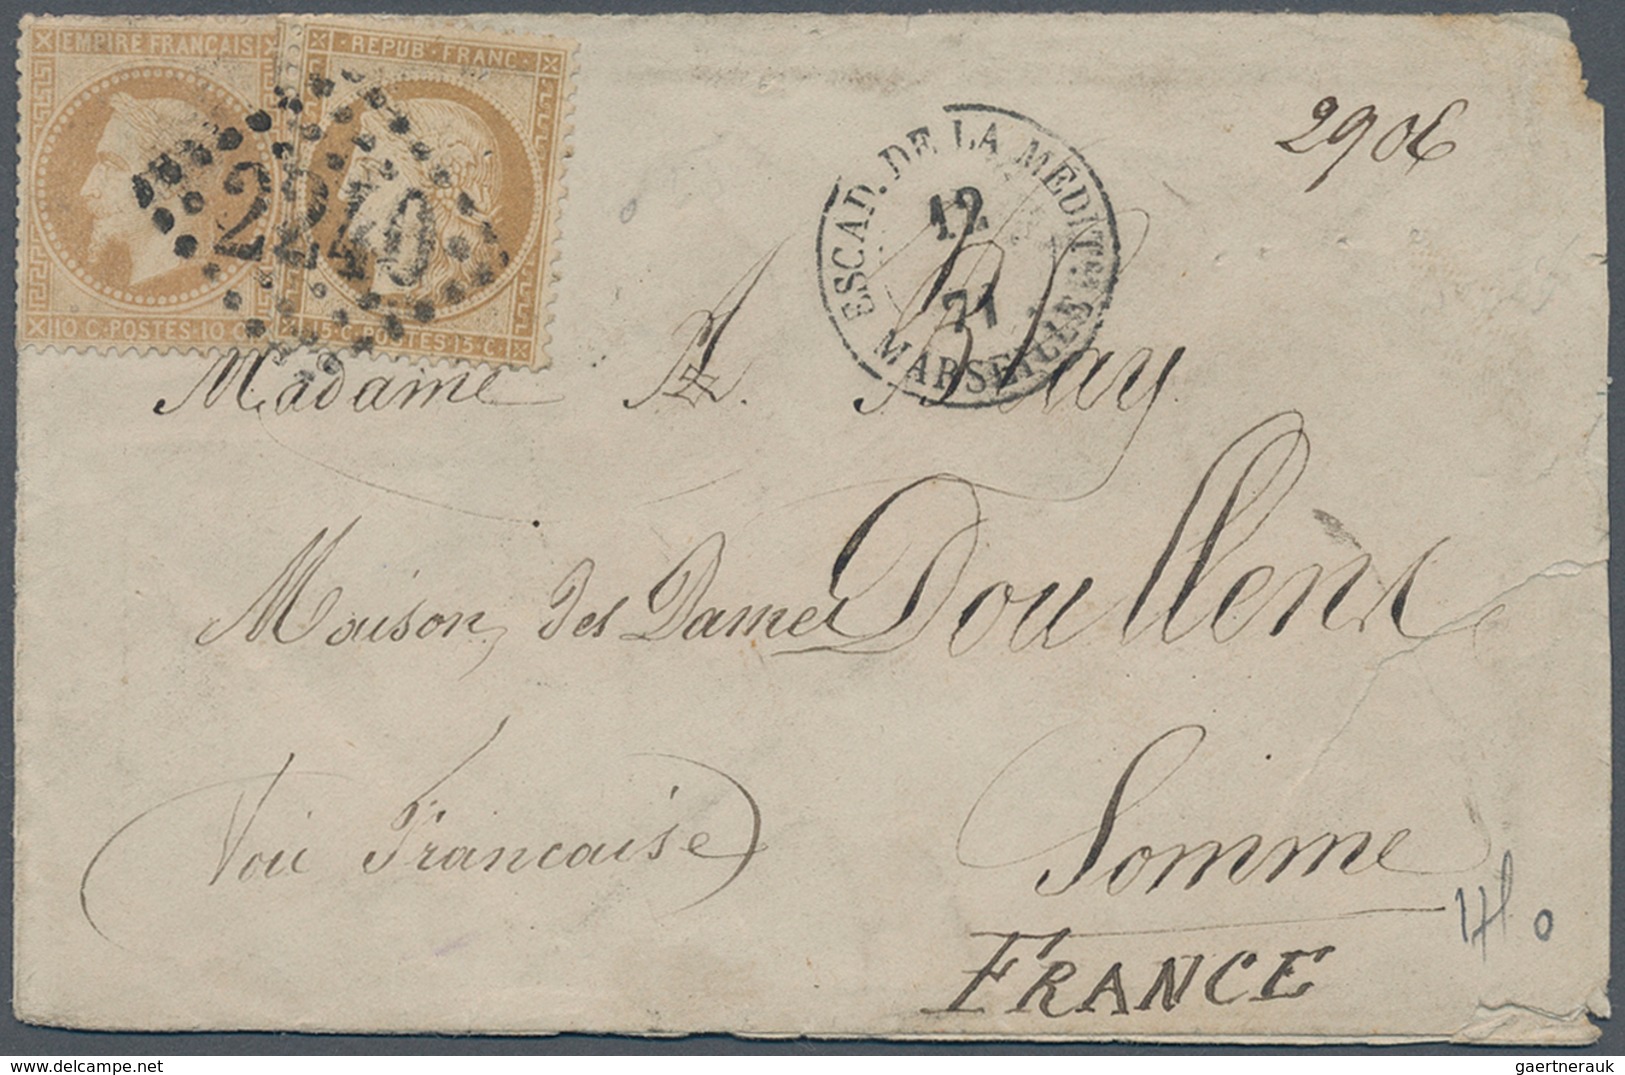 EMPIRE FRANCAIS
REPUB. FRANC.
2240
10 C. POSTES. 10 C.
15. C. POSTES. 15. C.
ESCAD. DE LA MEDITEE
12
71
MARSEILLE
2906
Madame A. Blay
Maison des Dames Doullens
Somme
Voie Francaise
FRANCE
gaertnerauk